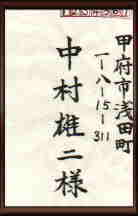 甲府市浅田町
一-八-15-311
中村雄二様